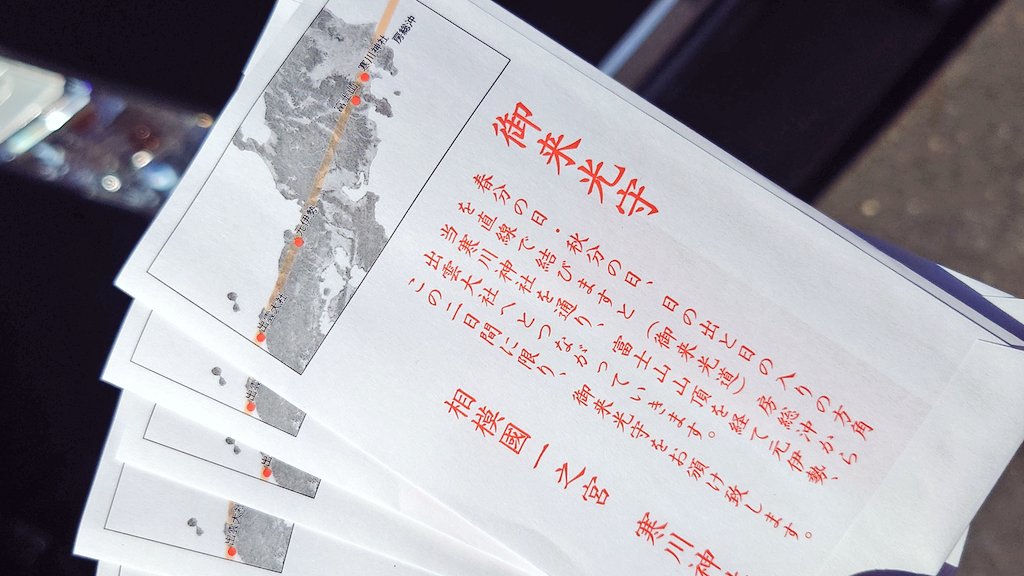 御来光守
春分の日・秋分の日、日の出と日の入りの方角
を直線で結びますと（御来光道）房総沖から
当寒川神社を通り、富士山山頂を経て元伊勢、
出雲大社へとつながっていきます。
この二日間に限り、御来光守をお頒け致します。
相模國一之宮 寒川神
房総沖
寒川神社
富士山
元伊勢
出雲大社
出雲
出雲
出雲大社